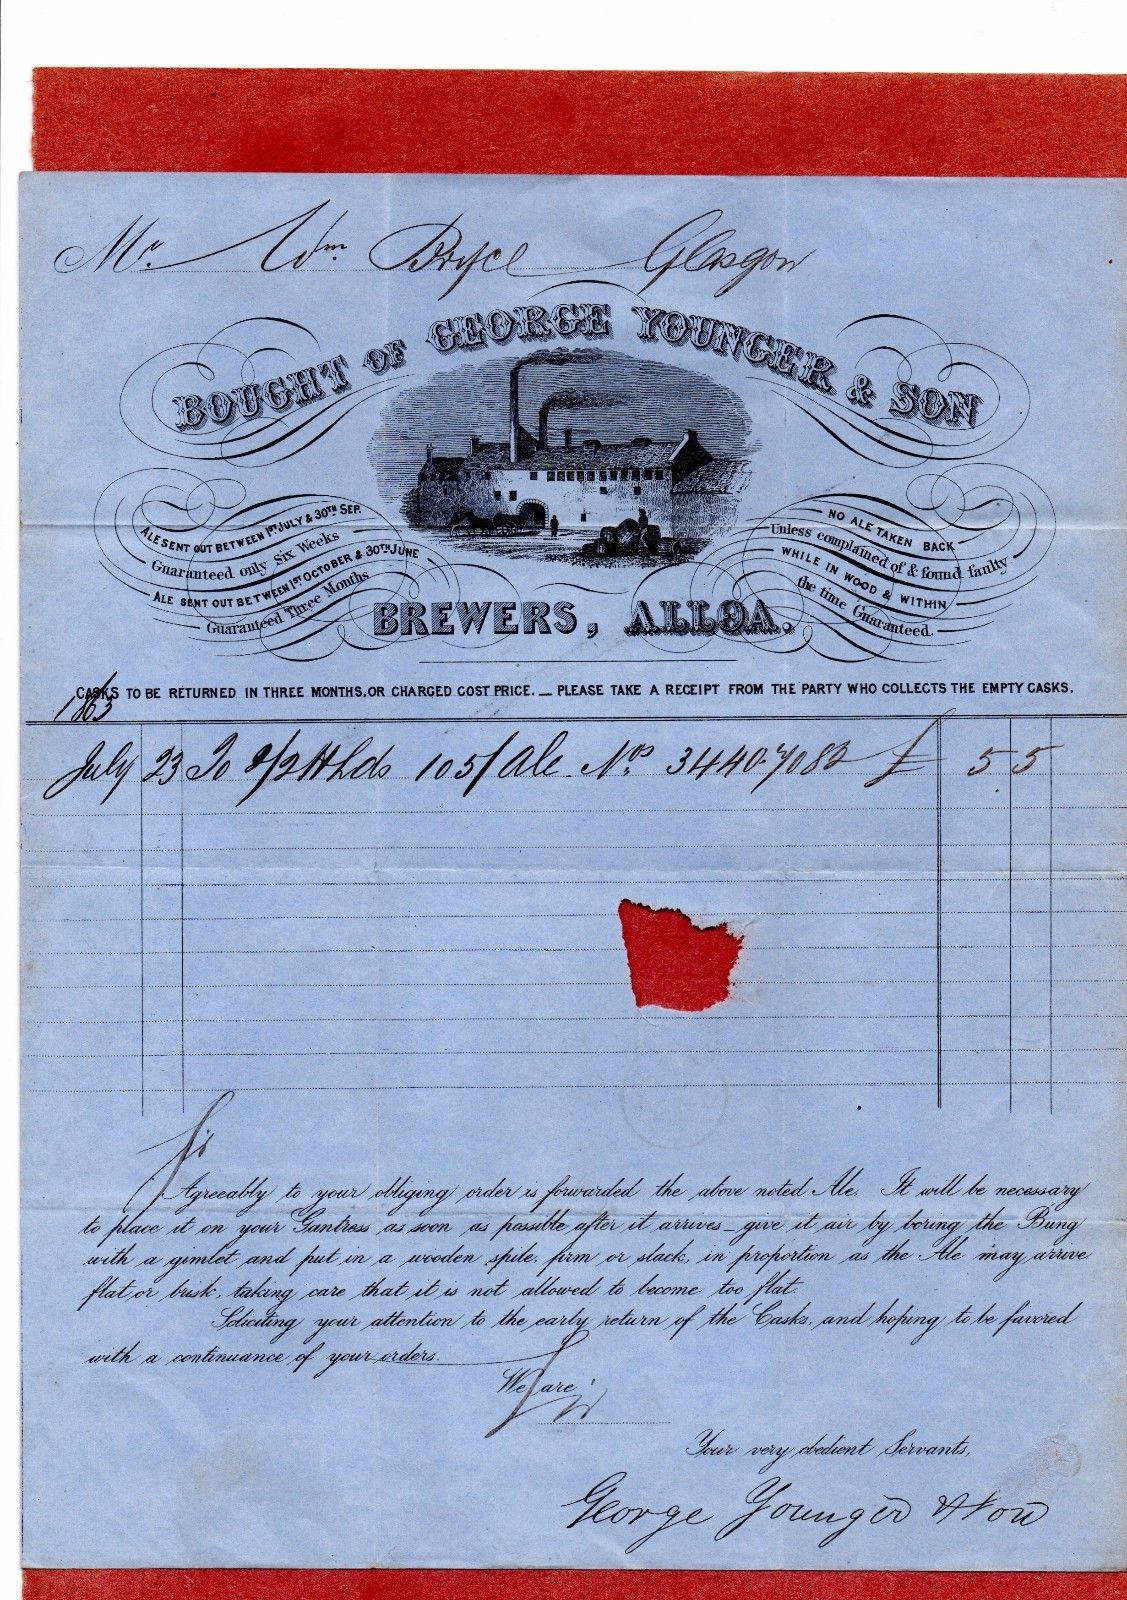 Mr. Wm. Bryce Glasgow
BOUGHT OF GEORGE YOUNGER & SON
ALE SENT OUT BETWEEN 1ST JULY & 30TH SEP.
Guaranteed only Six Weeks
ALE SENT OUT BETWEEN 1ST OCTOBER & 30TH JUNE
Guaranteed Three Months
NO ALE TAKEN BACK
Unless complained of & found faulty
WHILE IN WOOD & WITHIN
the time Guaranteed.
BREWERS, ALLOA.
CASKS TO BE RETURNED IN THREE MONTHS, OR CHARGED COST PRICE. — PLEASE TAKE A RECEIPT FROM THE PARTY WHO COLLECTS THE EMPTY CASKS.
1863
July 23 To 2/2 Hhds 105/ Ale Nos. 3440.7082 £ 5 5
Sir
Agreeably to your obliging order is forwarded the above noted Ale. It will be necessary
to place it on your Gantress as soon as possible after it arrives – give it air by boring the Bung
with a gimlet and put in a wooden spile, firm or slack, in proportion as the Ale may arrive
flat or brisk, taking care that it is not allowed to become too flat.
Soliciting your attention to the early return of the Casks, and hoping to be favored
with a continuance of your orders.
We are
Sir
Your very obedient Servants,
George Younger & Son